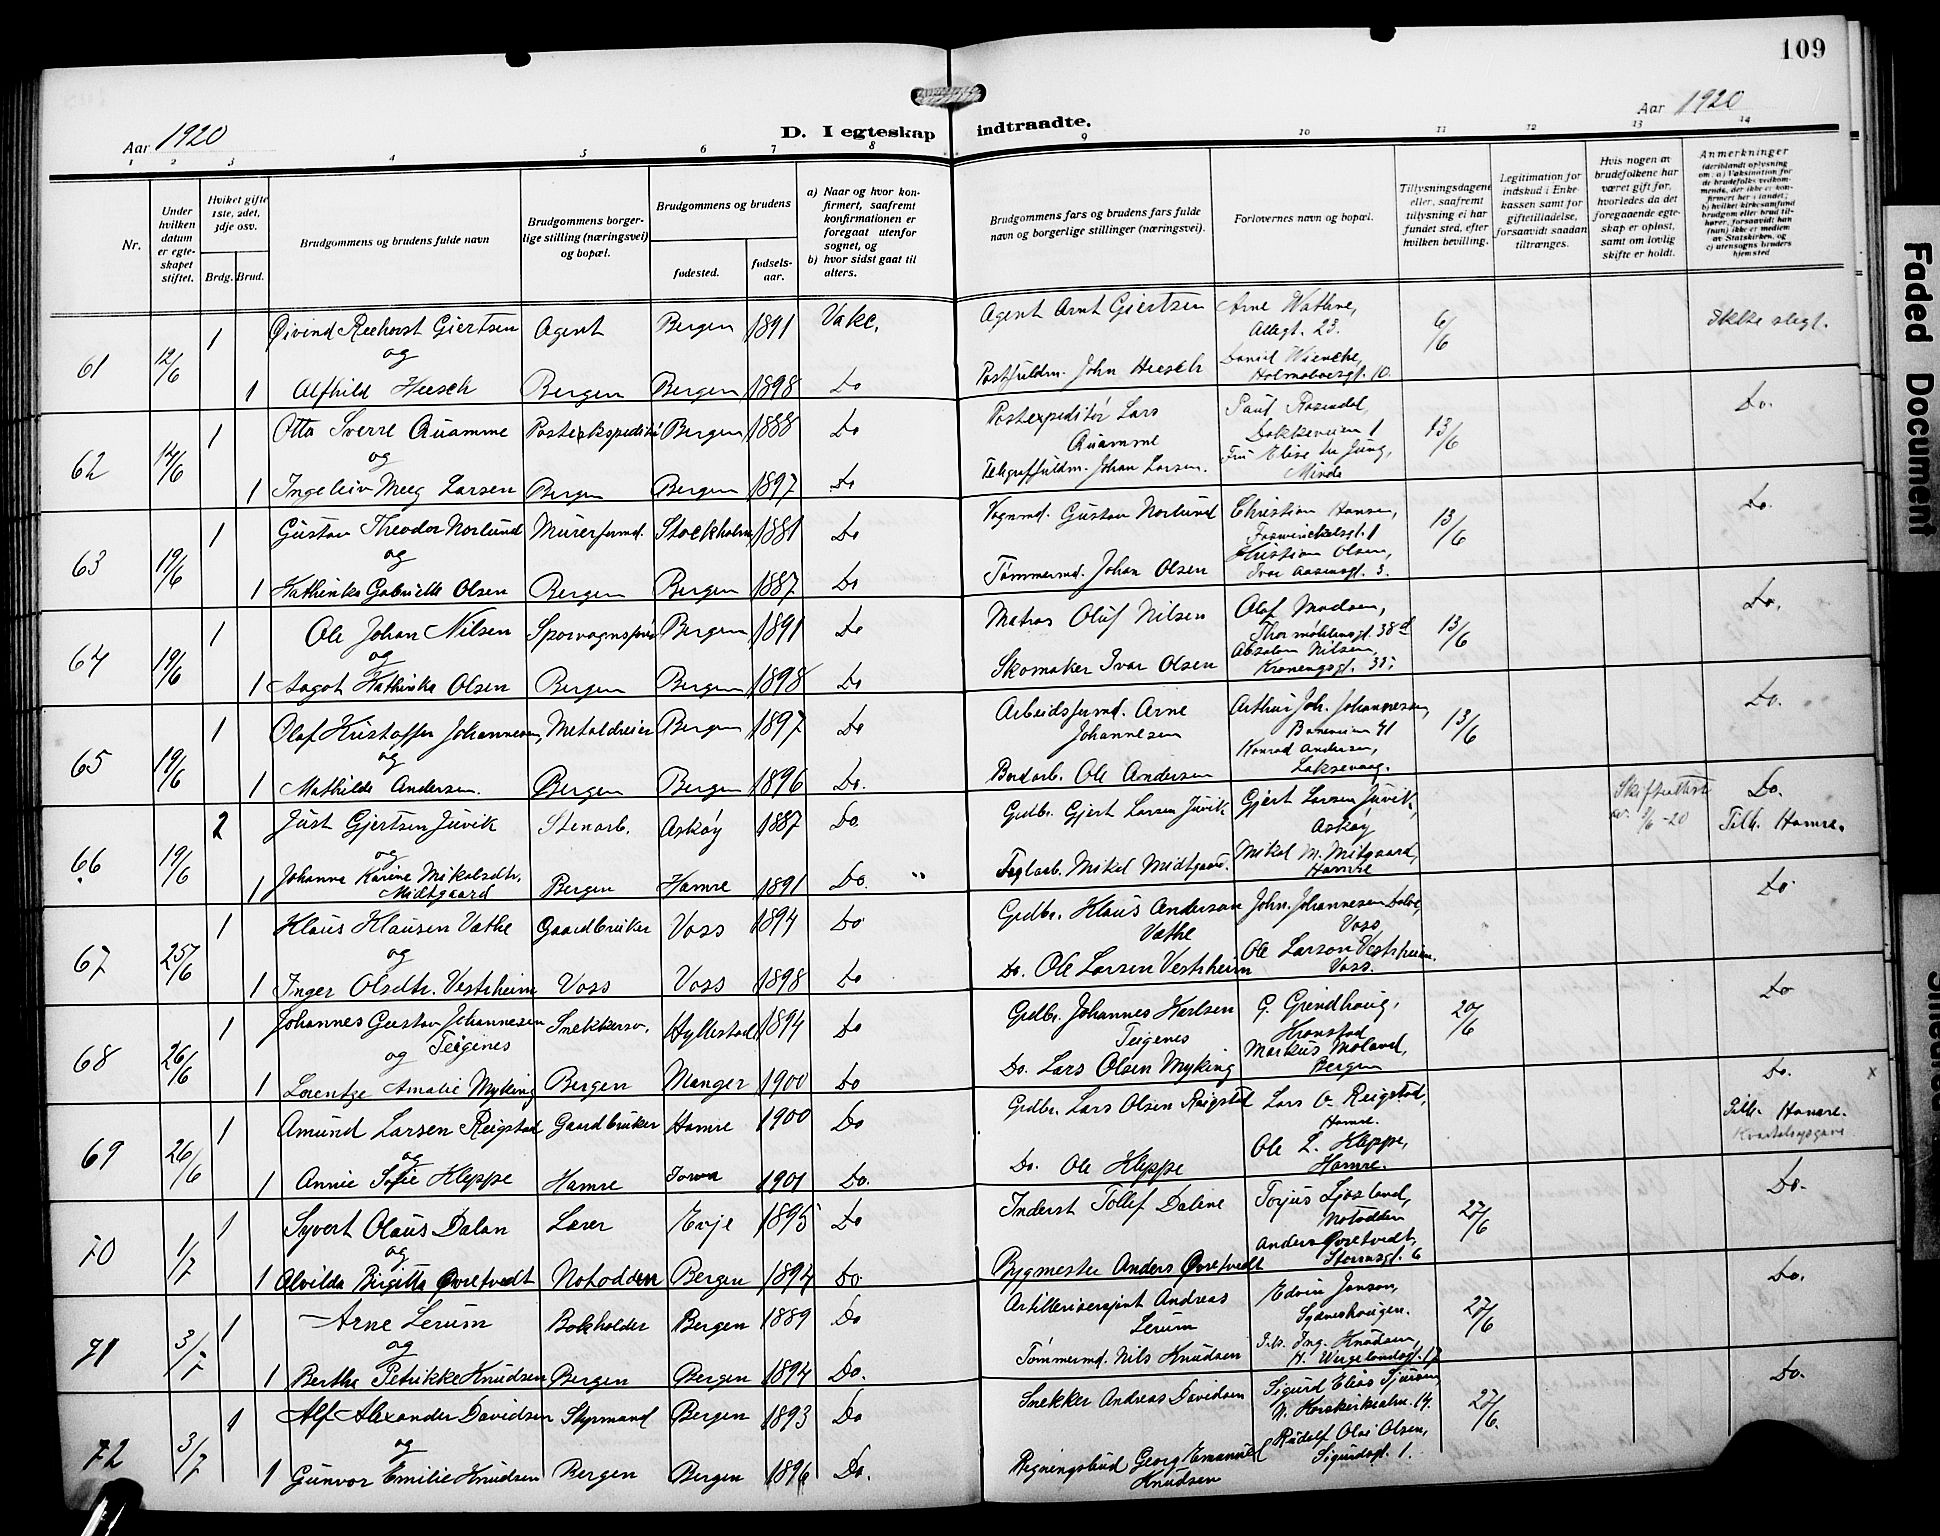 109
Aar 1920
D. I egteskap indtraadte.
Aar 1920
1 2 3 4 5 6 7 8 9 10 11 12 13 14
Nr.
Under hvilken datum er egteskapet stiftet.
Hvilket gifte 1ste, 2det, 3dje osv.
Brdg. Brud.
Brudgommens og brudens fulde navn
Brudgommens borgerlige stilling (næringsvei) og bopæl.
Brudgommens og brudens
fødested.
fødselsaar.
a) Naar og hvor konfirmert, saafremt konfirmationen er foregaat utenfor sognet, og
b) hvor sidst gaat til alters.
Brudgommens fars og brudens fars fulde navn og borgerlige stillinger (næringsvei).
Forlovernes navn og bopæl.
Tillysningsdagene eller, saafremt tillysning ei har fundet sted, efter hvilken bevilling.
Legitimation for indskud i Enkekassen samt for giftetilladelse, forsaavidt saadan tiltrænges.
Hvis nogen av brudefolkene har været gift før, hvorledes da det foregaaende egteskap er opløst, samt om lovlig skifte er holdt.
Anmerkninger
61 12/6 1 Øivind Reehorst Giertsen Agent Bergen 1891 Vakc. Agent Arnt Giertsen Arne Watlne, Allegt. 23. 6/6 Ikke slegt.
og
1 Alfhild Heesch Bergen Bergen 1898 Do Postfuldm. John Heesch Daniel Wiencke, Holmeboesgt. 10.
62 14/6 1 Otto Sverre Quamme Postekspeditør Bergen 1888 Do Postexpeditør Lars Quamme Paul Rosendal, Dokkeveien 1 13/6 Do.
og
1 Ingeleiv Meeg Larsen Bergen Bergen 1897 Do Telegraffuldm. Johan Larsen. Fru Elise du Jung, Minde
63 19/6 1 Gustav Theodor Norlund Murerformd. Stockholm 1881 Do Vognmd. Gustav Norlund Christian Hansen, Foswinckelsgt. 1 13/6 Do.
og
1 Kathinka Gabrielle Olsen Bergen Bergen 1887 Do Tømmermd. Johan Olsen Kristian Olsen, Ivar Aasensgt. 3.
64 19/6 1 Ole Johan Nilsen Sporvognsfører Bergen 1891 Do Matros Oluf Nilsen Olaf Madsen, Thormøhlensgt. 38d 13/6 Do.
og
1 Aagot Kathinka Olsen Bergen Bergen 1898 Do Skomaker Ivar Olsen Absalon Nilsen, Kronengsgt. 33.
65 19/6 1 Olaf Kristoffer Johannesen, Metaldreier Bergen 1897 Do Arbeidsformd. Arne Johannesen Arthur Joh. Johannesen, Baneveien 41 13/6 Do.
og
1 Mathilde Andersen. Bergen Bergen 1896 Do. Bordarb. Ole Andersen Konrad Andersen, Laksevaag.
66 19/6 2 Just Gjertsen Juvik Stenarb. Askøy 1887 Do Grdbr. Gjert Larsen Juvik Gjert Larsen Juvik, Askøy Skifteattest av 8/6-20 Do. Tilh. Hamre.
og
1 Johanna Karine Mikalsdtr. Midtgaard Bergen Hamre 1891 Do. " Faglarb. Mikal Midtgaard. Mikal M. Mitgaard, Hamre
67 25/6 1 Klaus Klausen Væthe Gaardbruker Voss 1894 Do Grdbr. Klaus Anderson Væthe John Johannesen Dolve, Voss Do
og
1 Inger Olsdtr. Vestrheim Voss Voss 1898 Do Do. Ole Larsen Vestrheim Ole Larson Vestrheim. Voss.
68 26/6 1 Johannes Gustav Johannesen Teigenes Snekkersv. Hyllestad 1894 Do Grdbr. Johannes Herlsen Teigenes G. Grindhaug, Kronstad 20/6 Do
og
1 Lorentze Amalie Myking Bergen Manger 1900 Do Do. Lars Olsen Myking Markus Moland, Bergen
69 26/6 1 Amund Larsen Reigstad Gaardbruker Hamre 1900 Do Grdbr. Lars Olsen Reigstad Lars O. Reigstad, Hamre. Do. Tilh. Hamre. Kvartalsopgave x
og
1 Annie Sofie Kleppe Hamre Iowa 1901 Do. Do. Ole Kleppe Ole L. Kleppe, Hamre.
70 1/7 1 Syvert Olaus Dalan Lærer Evje 1895 Do Inderst Tollef Dalene Torjus Ljosland, Notodden 27/6 Do.
og
1 Alvilda Birgitta Øvretvedt Notodden Bergen 1894 Do. Bygmester Anders Øvretvedt Anders Øvretvedt, Stormsgt. 6
71 3/7 1 Arne Lerum Bokholder Bergen 1889 Do Artillerisersjant Andreas Lerum Edvin Janson, Sydneshaugen. 27/6 Do.
og
1 Bertha Petrikke Knudsen Bergen Bergen 1894 Do. Tømmermd. Nils Knudsen Ing. Knudsen, H. Wergelandsgt. 17
72 3/7 1 Alf Alexander Davidsen Styrmand Bergen 1893 Do Snekker Andreas Davidsen Sigurd Elias Sjursen, N. Korskirkealm. 14. 27/6. Do.
og
1 Gunvor Emilie Knudsen Bergen Bergen 1896 Do. Regningsbud Georg Emanuel Knudsen Rudolf Olai Olsen, Sigurdsgt. 1.
Faded Document